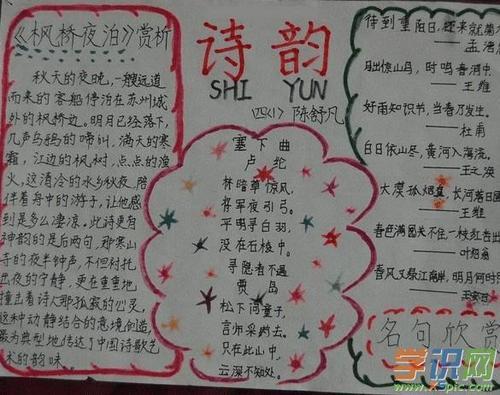 《枫桥夜泊》赏析
秋天的夜晚，一艘远道
而来的客船停泊在苏州城
外的枫桥边。明月已经落下，
几声乌鸦的啼叫，满天的寒
霜，江边的枫树，点点的渔
火，这清冷的水乡秋夜，陪
伴着舟中的游子，让他感
到是多么凄凉。此诗更有
神韵的是后两句，那寒山
寺的夜半钟声，不但衬托
出夜的宁静，更在重重地
撞击着诗人那孤寂的心灵，
这种动静结合的意境创造，
最为典型地传达了中国诗歌艺
术的韵味。
诗韵
SHI YUN
四(1) 陈舒凡
塞下曲
卢纶
林暗草惊风，
将军夜引弓。
平明寻白羽，
没在石棱中。
寻隐者不遇
贾岛
松下问童子，
言师采药去。
只在此山中，
云深不知处。
待到重阳日，还来就菊
——孟浩
月出惊山鸟，时鸣春涧中。
——王维
好雨知时节，当春乃发生。
——杜甫
白日依山尽，黄河入海流。
——王之涣
大漠孤烟直，长河落日圆
——王维
春色满园关不住，一枝红杏出
——叶绍翁
春风又绿江南岸，明月何时
——王安石
名句欣赏
学识网
www.xspic.com